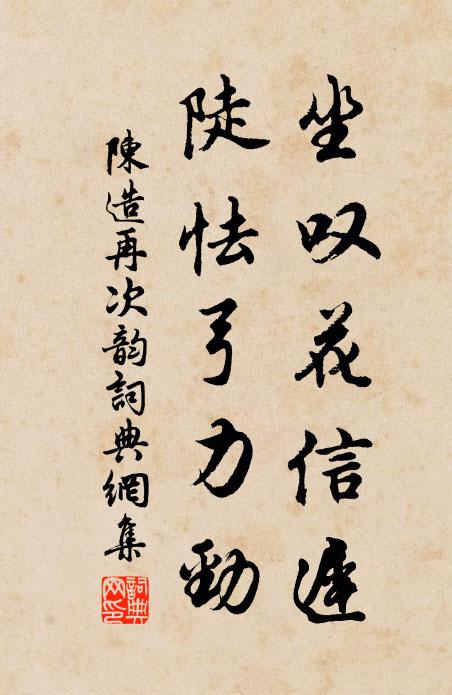 坐叹花信遲
陡怯弓力勁
陳造再次韵詞典網集
詞典网印